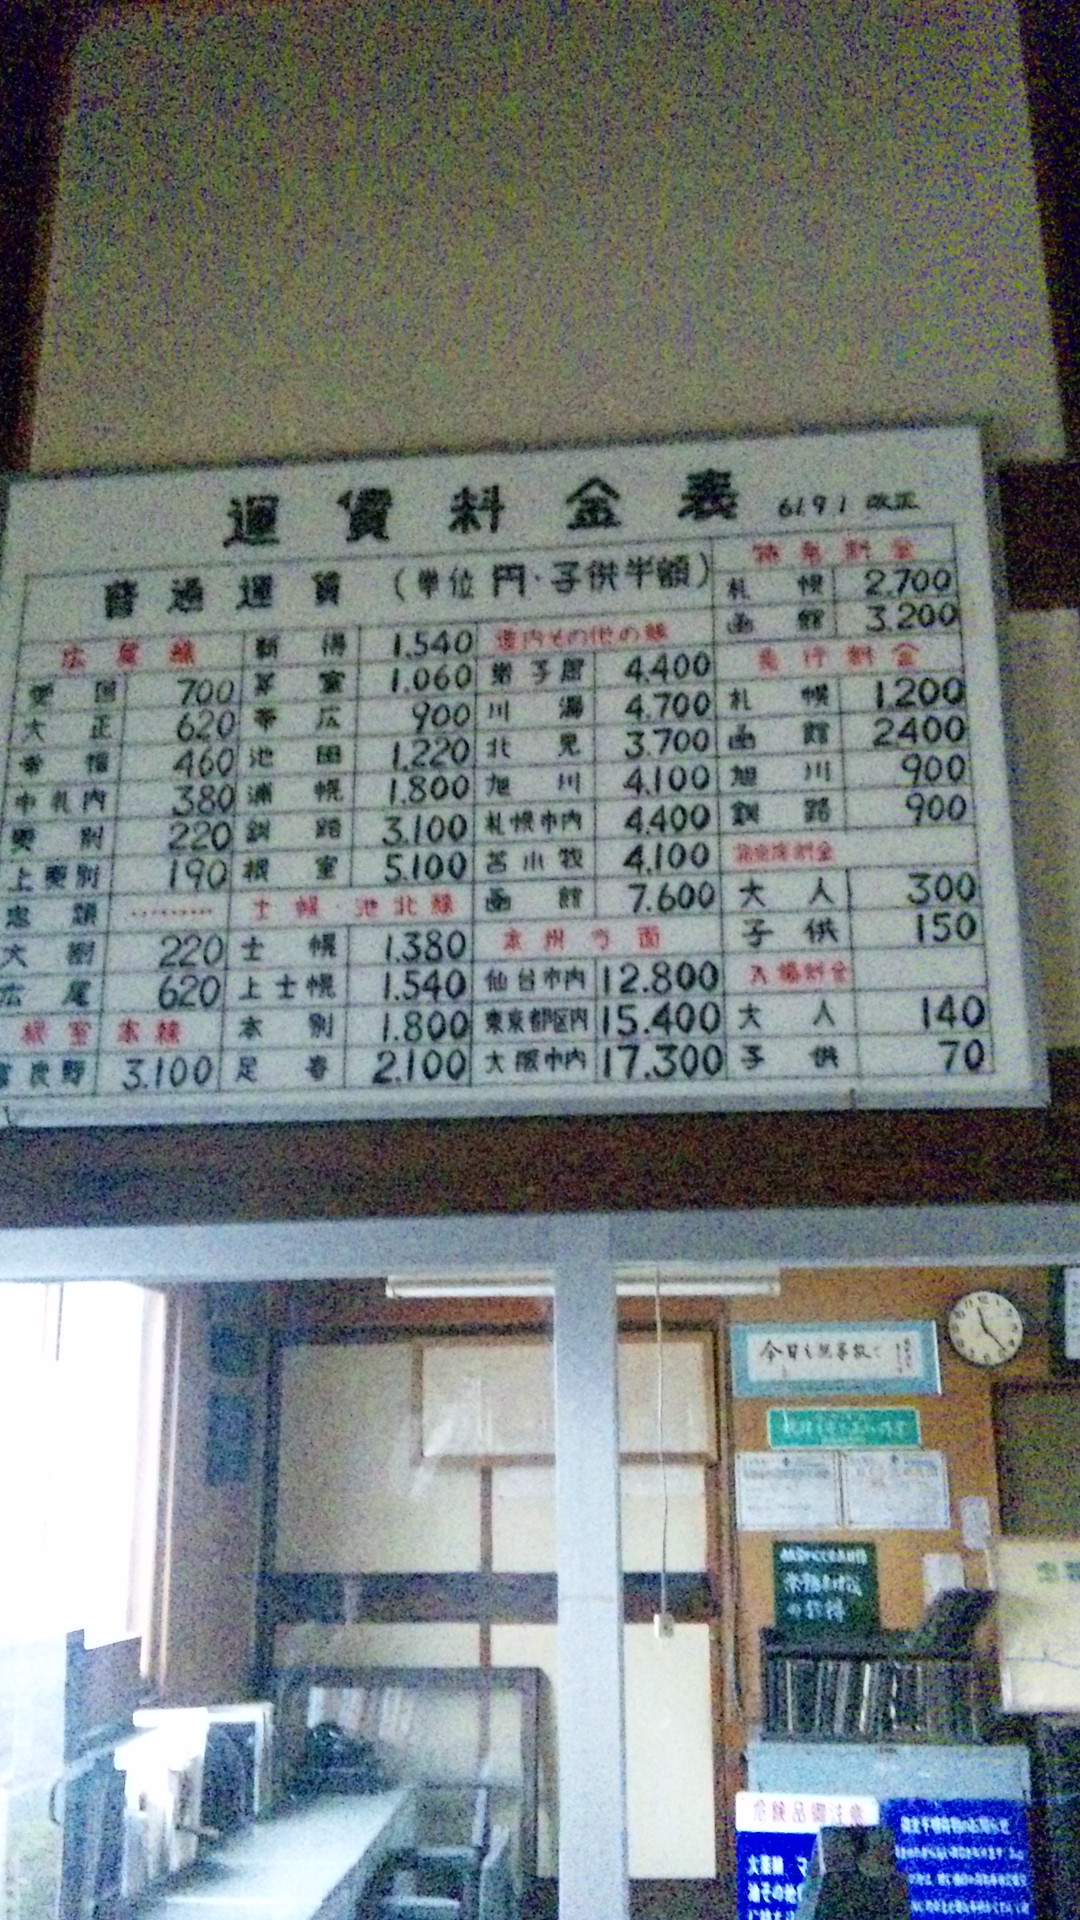 運賃料金表 61.9.1 改正
普通運賃 (単位 円・子供半額)
広尾線
愛国 700
大正 620
幸福 460
中札内 380
更別 220
上更別 190
忠類 ………
大樹 220
広尾 620
根室本線
富良野 3.100
新得 1.540
芽室 1.060
帯広 900
池田 1.220
浦幌 1.800
釧路 3.100
根室 5.100
士幌・池北線
士幌 1.380
上士幌 1.540
本別 1.800
足寄 2.100
道内その他の線
弟子屈 4.400
川湯 4.700
北見 3.700
旭川 4.100
札幌市内 4.400
苫小牧 4.100
函館 7.600
本州方面
仙台市内 12.800
東京都区内 15.400
大阪市内 17.300
特急料金
札幌 2.700
函館 3.200
急行料金
札幌 1.200
函館 2400
旭川 900
釧路 900
指定席料金
大人 300
子供 150
入場料金
大人 140
子供 70
今日も無事故で
危険品御注意